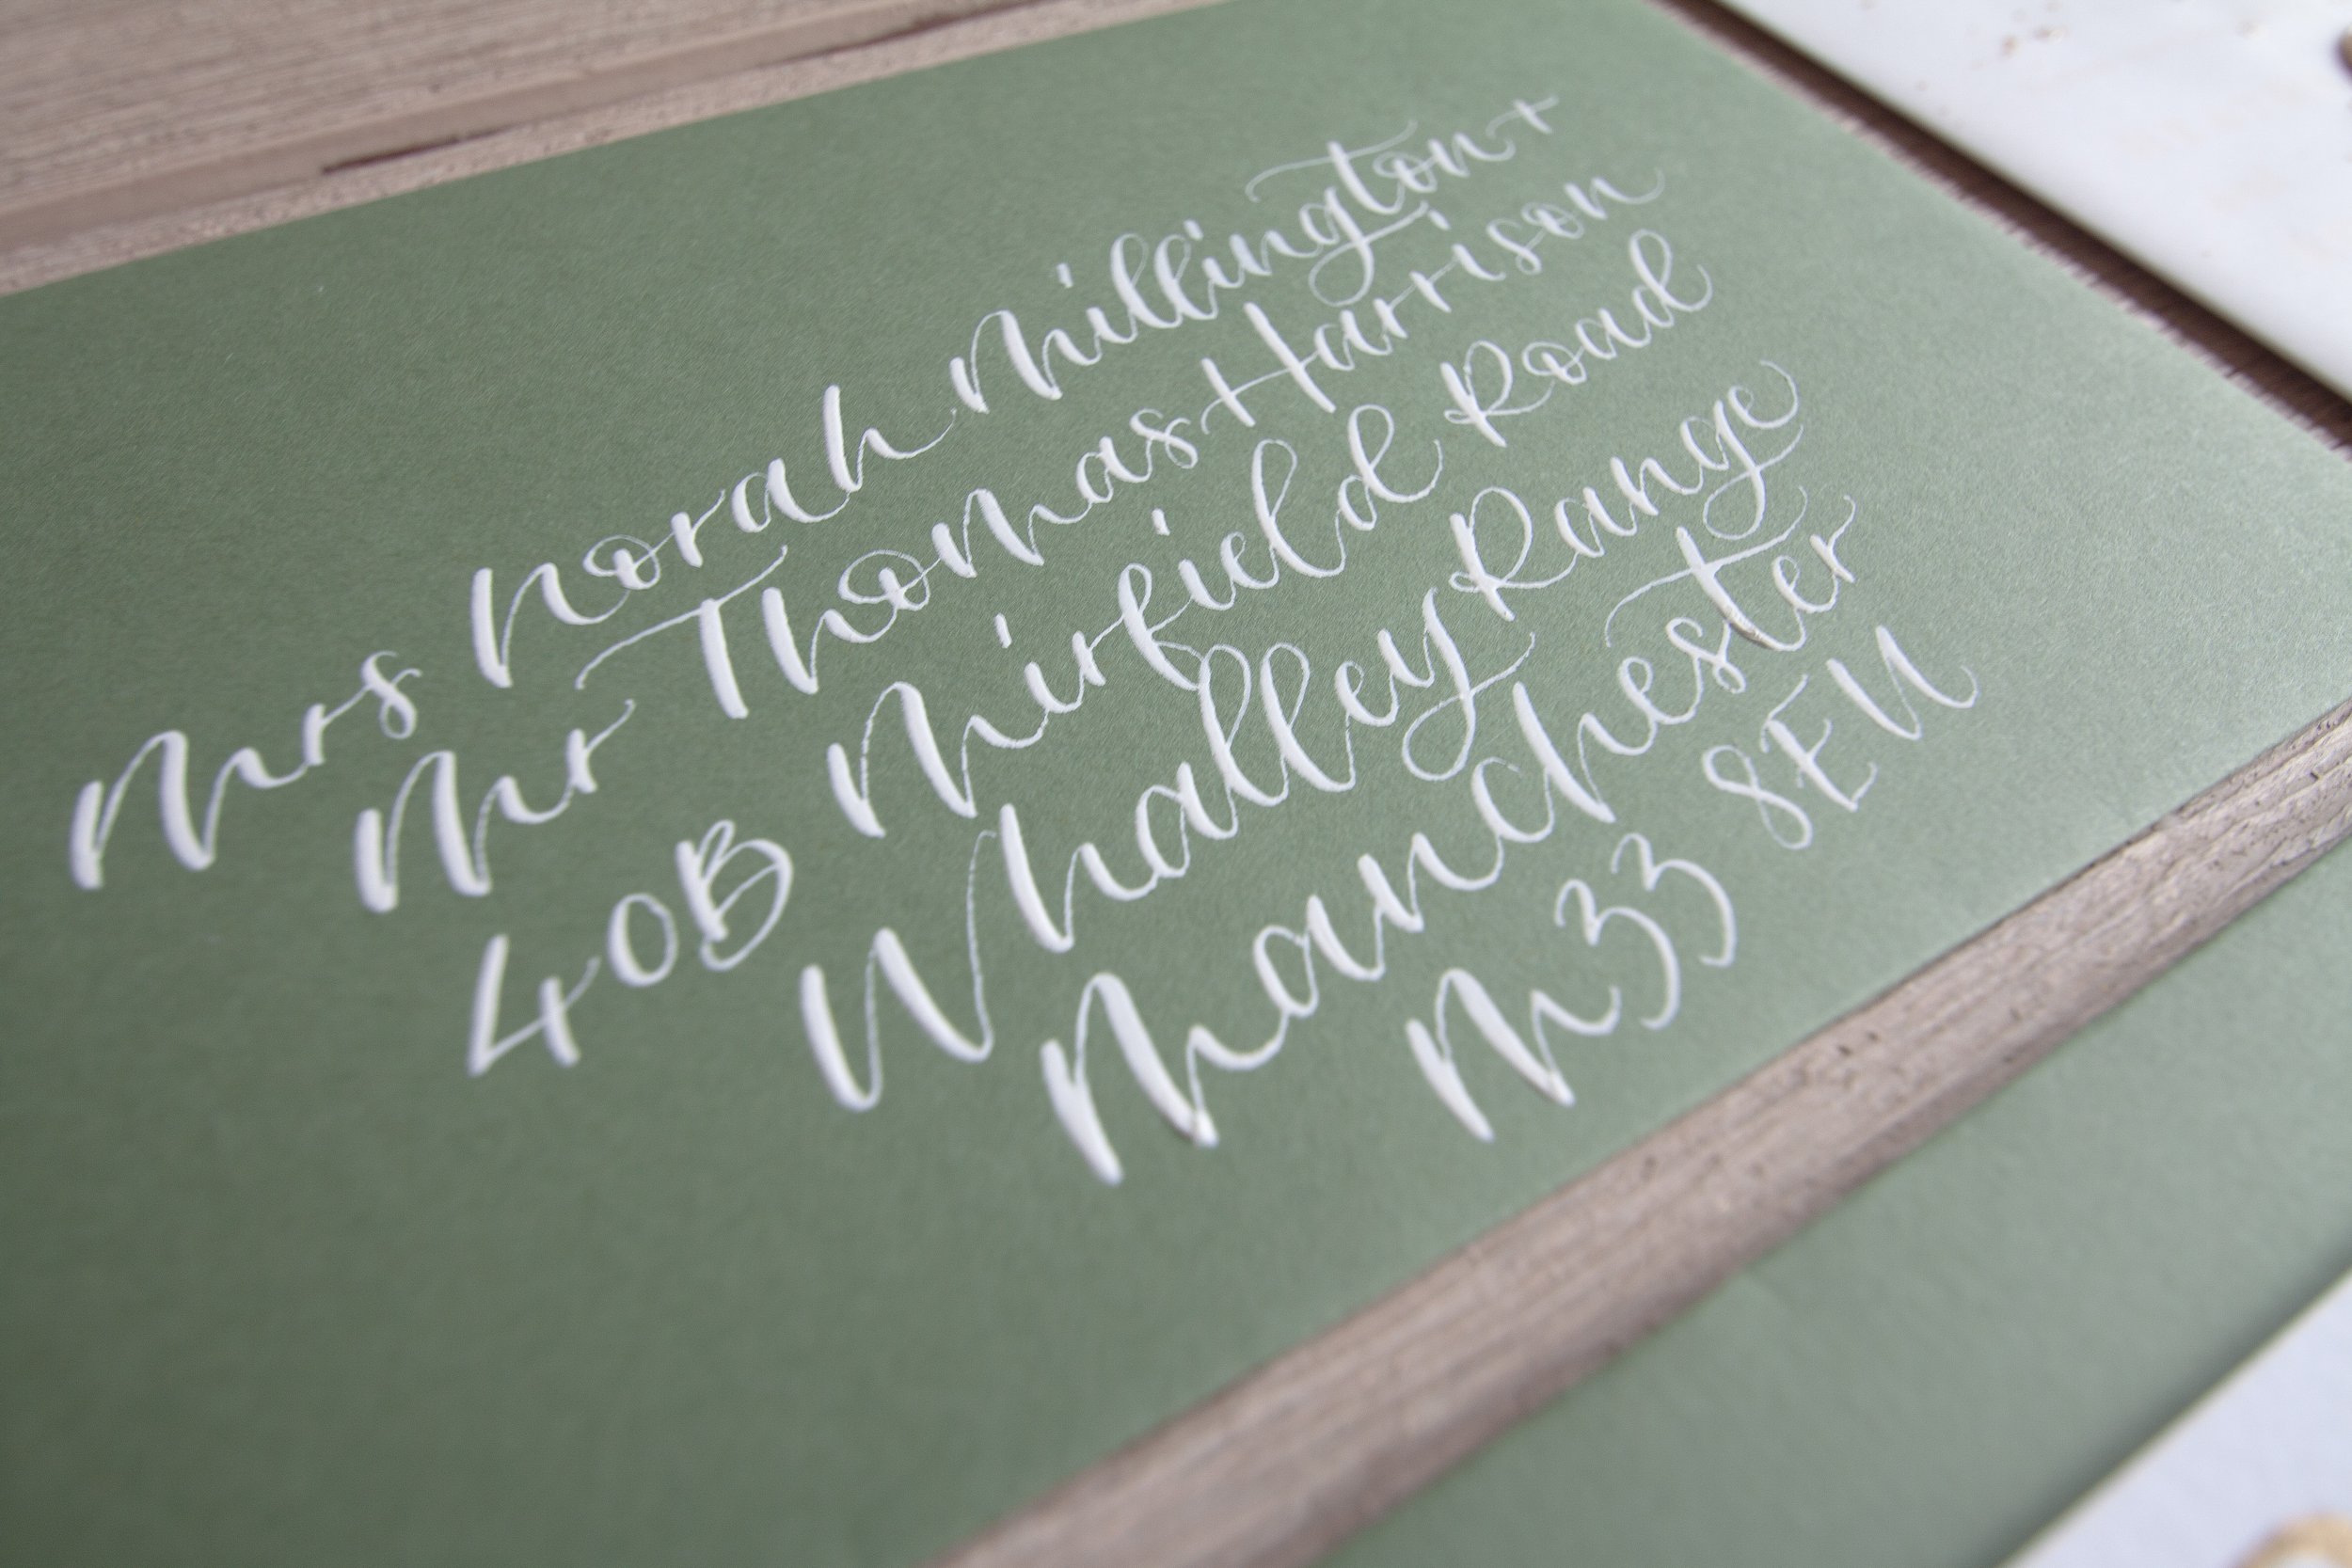 Mrs Norah Millington +
Mr Thomas Harrison
40B Mirfield Road
Whalley Range
Manchester
M33 8EN